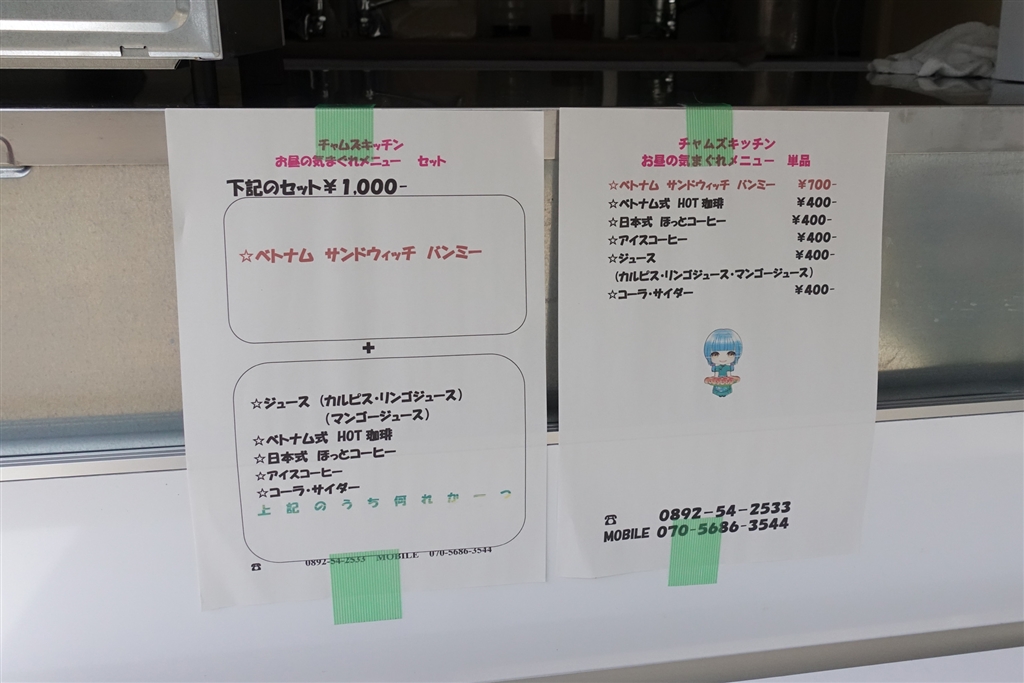 チャムズキッチン
お昼の気まぐれメニュー セット
下記のセット￥1,000-
☆ベトナム サンドウィッチ バンミー
+
☆ジュース（カルピス・リンゴジュース）
（マンゴージュース）
☆ベトナム式 HOT 珈琲
☆日本式 ほっとコーヒー
☆アイスコーヒー
☆コーラ・サイダー
上記のうち何れか一つ
☎ 0892-54-2533 MOBILE 070-5686-3544
チャムズキッチン
お昼の気まぐれメニュー 単品
☆ベトナム サンドウィッチ バンミー ￥700-
☆ベトナム式 HOT 珈琲 ￥400-
☆日本式 ほっとコーヒー ￥400-
☆アイスコーヒー ￥400-
☆ジュース ￥400-
（カルピス・リンゴジュース・マンゴージュース）
☆コーラ・サイダー ￥400-
☎ 0892-54-2533
MOBILE 070-5686-3544